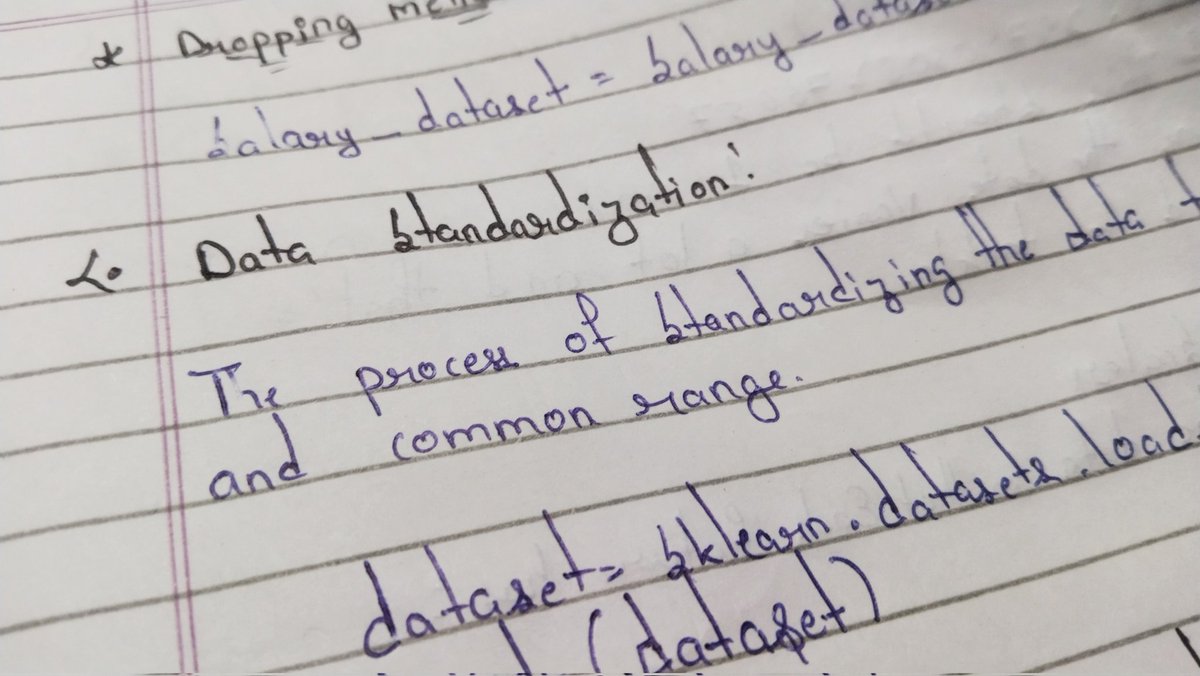 * Dropping
salary_dataset = salary_
2. Data Standardization:
The process of standardizing the data
and common range.
dataset = sklearn.datasets.load
(dataset)